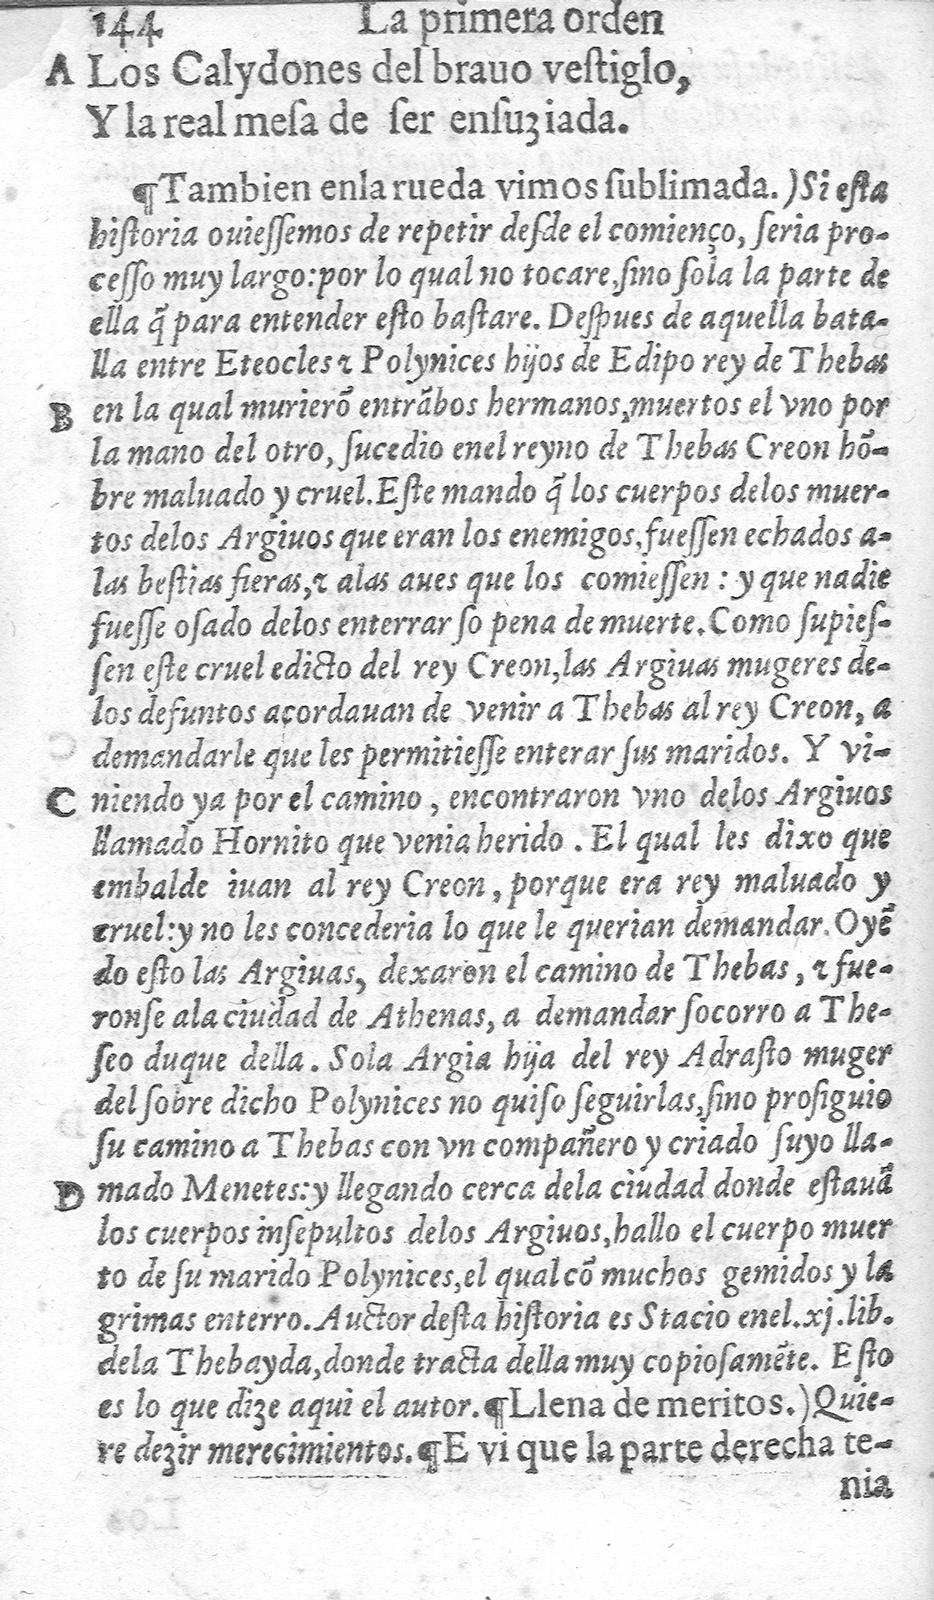 144 La primera orden
A Los Calydones del brauo vestiglo,
Y la real mesa de ser ensuziada.
¶Tambien enla rueda vimos sublimada.) Si esta
historia ouiessemos de repetir desde el comienço, seria pro-
cesso muy largo: por lo qual no tocare, sino sola la parte de
ella q̃ para entender esto bastare. Despues de aquella bata-
lla entre Eteocles ⁊ Polynices hijos de Edipo rey de Thebas
B en la qual murierõ entrãbos hermanos, muertos el vno por
la mano del otro, sucedio enel reyno de Thebas Creon hõ-
bre maluado y cruel. Este mando q̃ los cuerpos delos muer-
tos delos Argiuos que eran los enemigos, fuessen echados a-
las bestias fieras, ⁊ alas aues que los comiessen : y que nadie
fuesse osado delos enterrar so pena de muerte. Como supies-
sen este cruel edicto del rey Creon, las Argiuas mugeres de-
los defuntos acordauan de venir a Thebas al rey Creon, a
demandarle que les permitiesse enterar sus maridos. Y vi-
C niendo ya por el camino, encontraron vno delos Argiuos
llamado Hornito que venia herido. El qual les dixo que
embalde iuan al rey Creon, porque era rey maluado y
cruel: y no les concederia lo que le querian demandar. Oyẽ
do esto las Argiuas, dexaron el camino de Thebas, ⁊ fue-
ronse ala ciudad de Athenas, a demandar socorro a The-
seo duque della. Sola Argia hija del rey Adrasto muger
del sobre dicho Polynices no quiso seguirlas, sino prosiguio
su camino a Thebas con vn compañero y criado suyo lla-
D mado Menetes: y llegando cerca dela ciudad donde estauã
los cuerpos insepultos delos Argiuos, hallo el cuerpo muer
to de su marido Polynices, el qual cõ muchos gemidos y la
grimas enterro. Auctor desta historia es Stacio enel .xj. lib.
dela Thebayda, donde tracta della muy copiosamẽte. Esto
es lo que dize aqui el autor. ¶Llena de meritos.) Quie-
re dezir merecimientos. ¶E vi que la parte derecha te-
nia